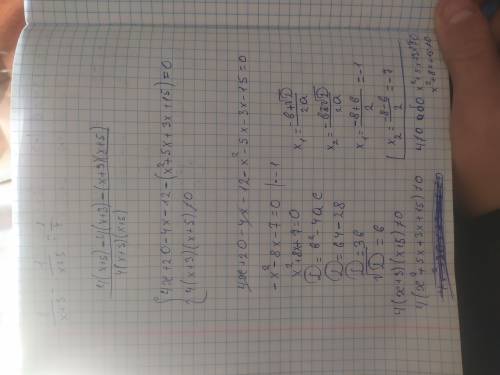 4(x+5)-4(x+3)-(x+3)(x+5)
4(x+3)(x+5)
4x+20-4x-12-(x²+5x+3x+15)=0
4(x+3)(x+5)≠0
4x+20-4x-12-x²-5x-3x-15=0
-x²-8x-7=0 |:-1
x²+8x+7=0
D=b²-4ac
D=64-28
D=36
√D=6
x₁=-b+√D
2a
x₂=-b-√D
2a
x₁=-8+6
2
=-1
x₂=-8-6
2
=-7
4(x+3)(x+5)≠0
4(x²+5x+3x+15)≠0